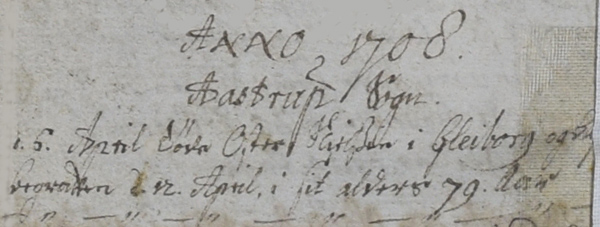 ANNO 1708.
Aastrup Sogn.
d. 6. April døde Oster Nielsen i Gleiborg og
begraffen d. 12. April, i sit alders 79. Aar